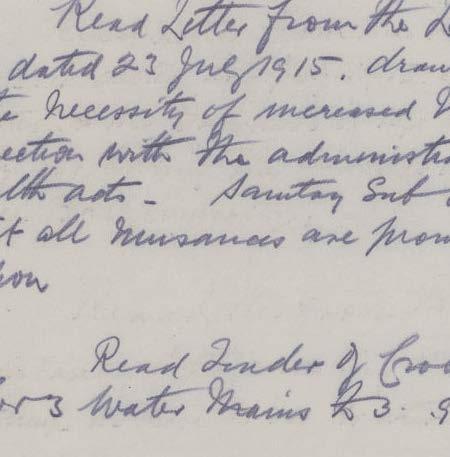 Read Letter from the
dated 23 July 1915. draw
necessity of increased
ection with the administra
lth acts - Sanitary Sub
t all nuisances are prom
hon
Read Tender of Croo
for 3 Water Mains to 3. 9